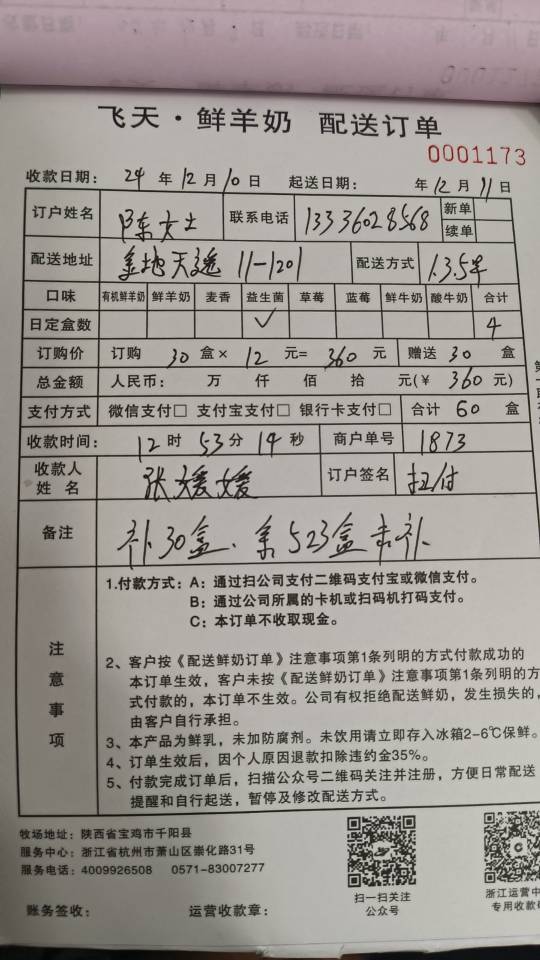 飞天·鲜羊奶 配送订单
0001173
收款日期: 24 年 12 月 10 日 起送日期: 年 12 月 11 日
订户姓名 陈女士 联系电话 13336028568 新单
续单
配送地址 金地天逸 11-1201 配送方式 1.3.5
口味 有机鲜羊奶 鲜羊奶 麦香 益生菌 草莓 蓝莓 鲜牛奶 酸牛奶 合计
日定盒数 ✓ 4
订购价 订购 30 盒× 12 元= 360 元 赠送 30 盒
总金额 人民币: 万 仟 佰 拾 元(¥ 360 元)
支付方式 微信支付□ 支付宝支付□ 银行卡支付□ 合计 60 盒
收款时间: 12 时 53 分 14 秒 商户单号 1873
收款人
姓 名 张媛媛 订户签名 扫付
备注 补30盒、余523盒未补
注意事项
1.付款方式: A: 通过扫公司支付二维码支付宝或微信支付。
B: 通过公司所属的卡机或扫码机打码支付。
C: 本订单不收取现金。
2、客户按《配送鲜奶订单》注意事项第1条列明的方式付款成功的
本订单生效，客户未按《配送鲜奶订单》注意事项第1条列明的方
式付款的，本订单不生效。公司有权拒绝配送鲜奶，发生损失的，
由客户自行承担。
3、本产品为鲜乳，未加防腐剂。未饮用请立即存入冰箱2-6℃保鲜。
4、订单生效后，因个人原因退款扣除违约金35%。
5、付款完成订单后，扫描公众号二维码关注并注册，方便日常配送
提醒和自行起送，暂停及修改配送方式。
牧场地址: 陕西省宝鸡市千阳县
服务中心: 浙江省杭州市萧山区崇化路31号
服务电话: 4009926508 0571-83007277
扫一扫关注
公众号
浙江运营中
专用收款码
账务签收: 运营收款章: